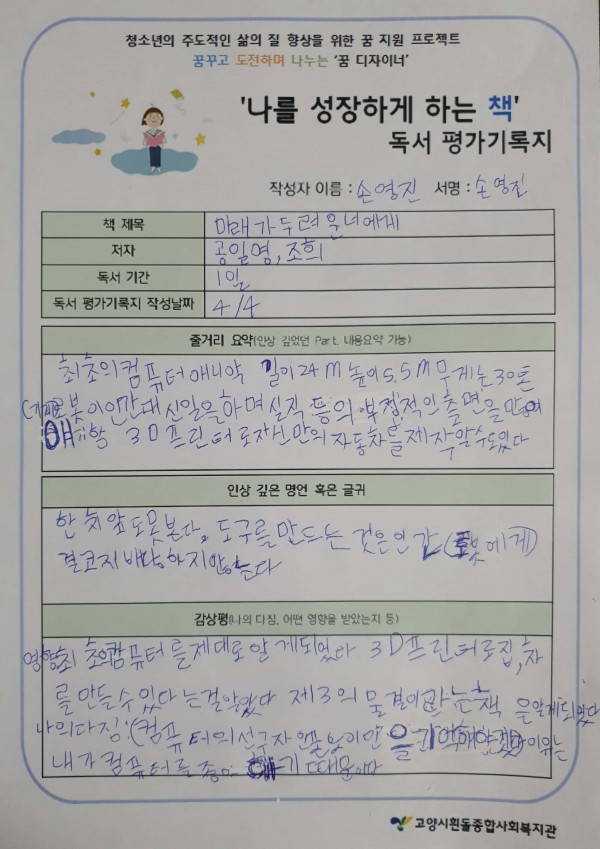 청소년의 주도적인 삶의 질 향상을 위한 꿈 지원 프로젝트
꿈꾸고 도전하며 나누는 '꿈 디자이너'
'나를 성장하게 하는 책'
독서 평가기록지
작성자 이름 : 손영진 서명 : 손영진
책 제목 미래가 두려운 너에게
저자 공일영, 조희
독서 기간 1일
독서 평가기록지 작성날짜 4/4
줄거리 요약(인상 깊었던 Part. 내용요약 가능)
최초의 컴퓨터 애니악 길이 24M 높이 5.5M 무게는 30톤
로봇이 인간 대신 일을 하며 실직 등의 출면을
3D프린터로 자신만의 자동차를 제작할 수도 있다
인상 깊은 명언 혹은 글귀
한 치 앞도 못 본다, 도구를 만드는 것은 인간 에게)
결코 지배당하지 않는다
감상평(나의 다짐, 어떤 영향을 받았는지 등)
영향 최초의 컴퓨터를 제대로 알게 되었다 3D프린터로 집, 차
를 만들 수 있다는 걸 알았다 제3의 물결이라는 책을 알게 되었다
나의 다짐 : (컴퓨터의 선구자 이유는
내가 컴퓨터를 기 때문이다
고양시흰돌종합사회복지관